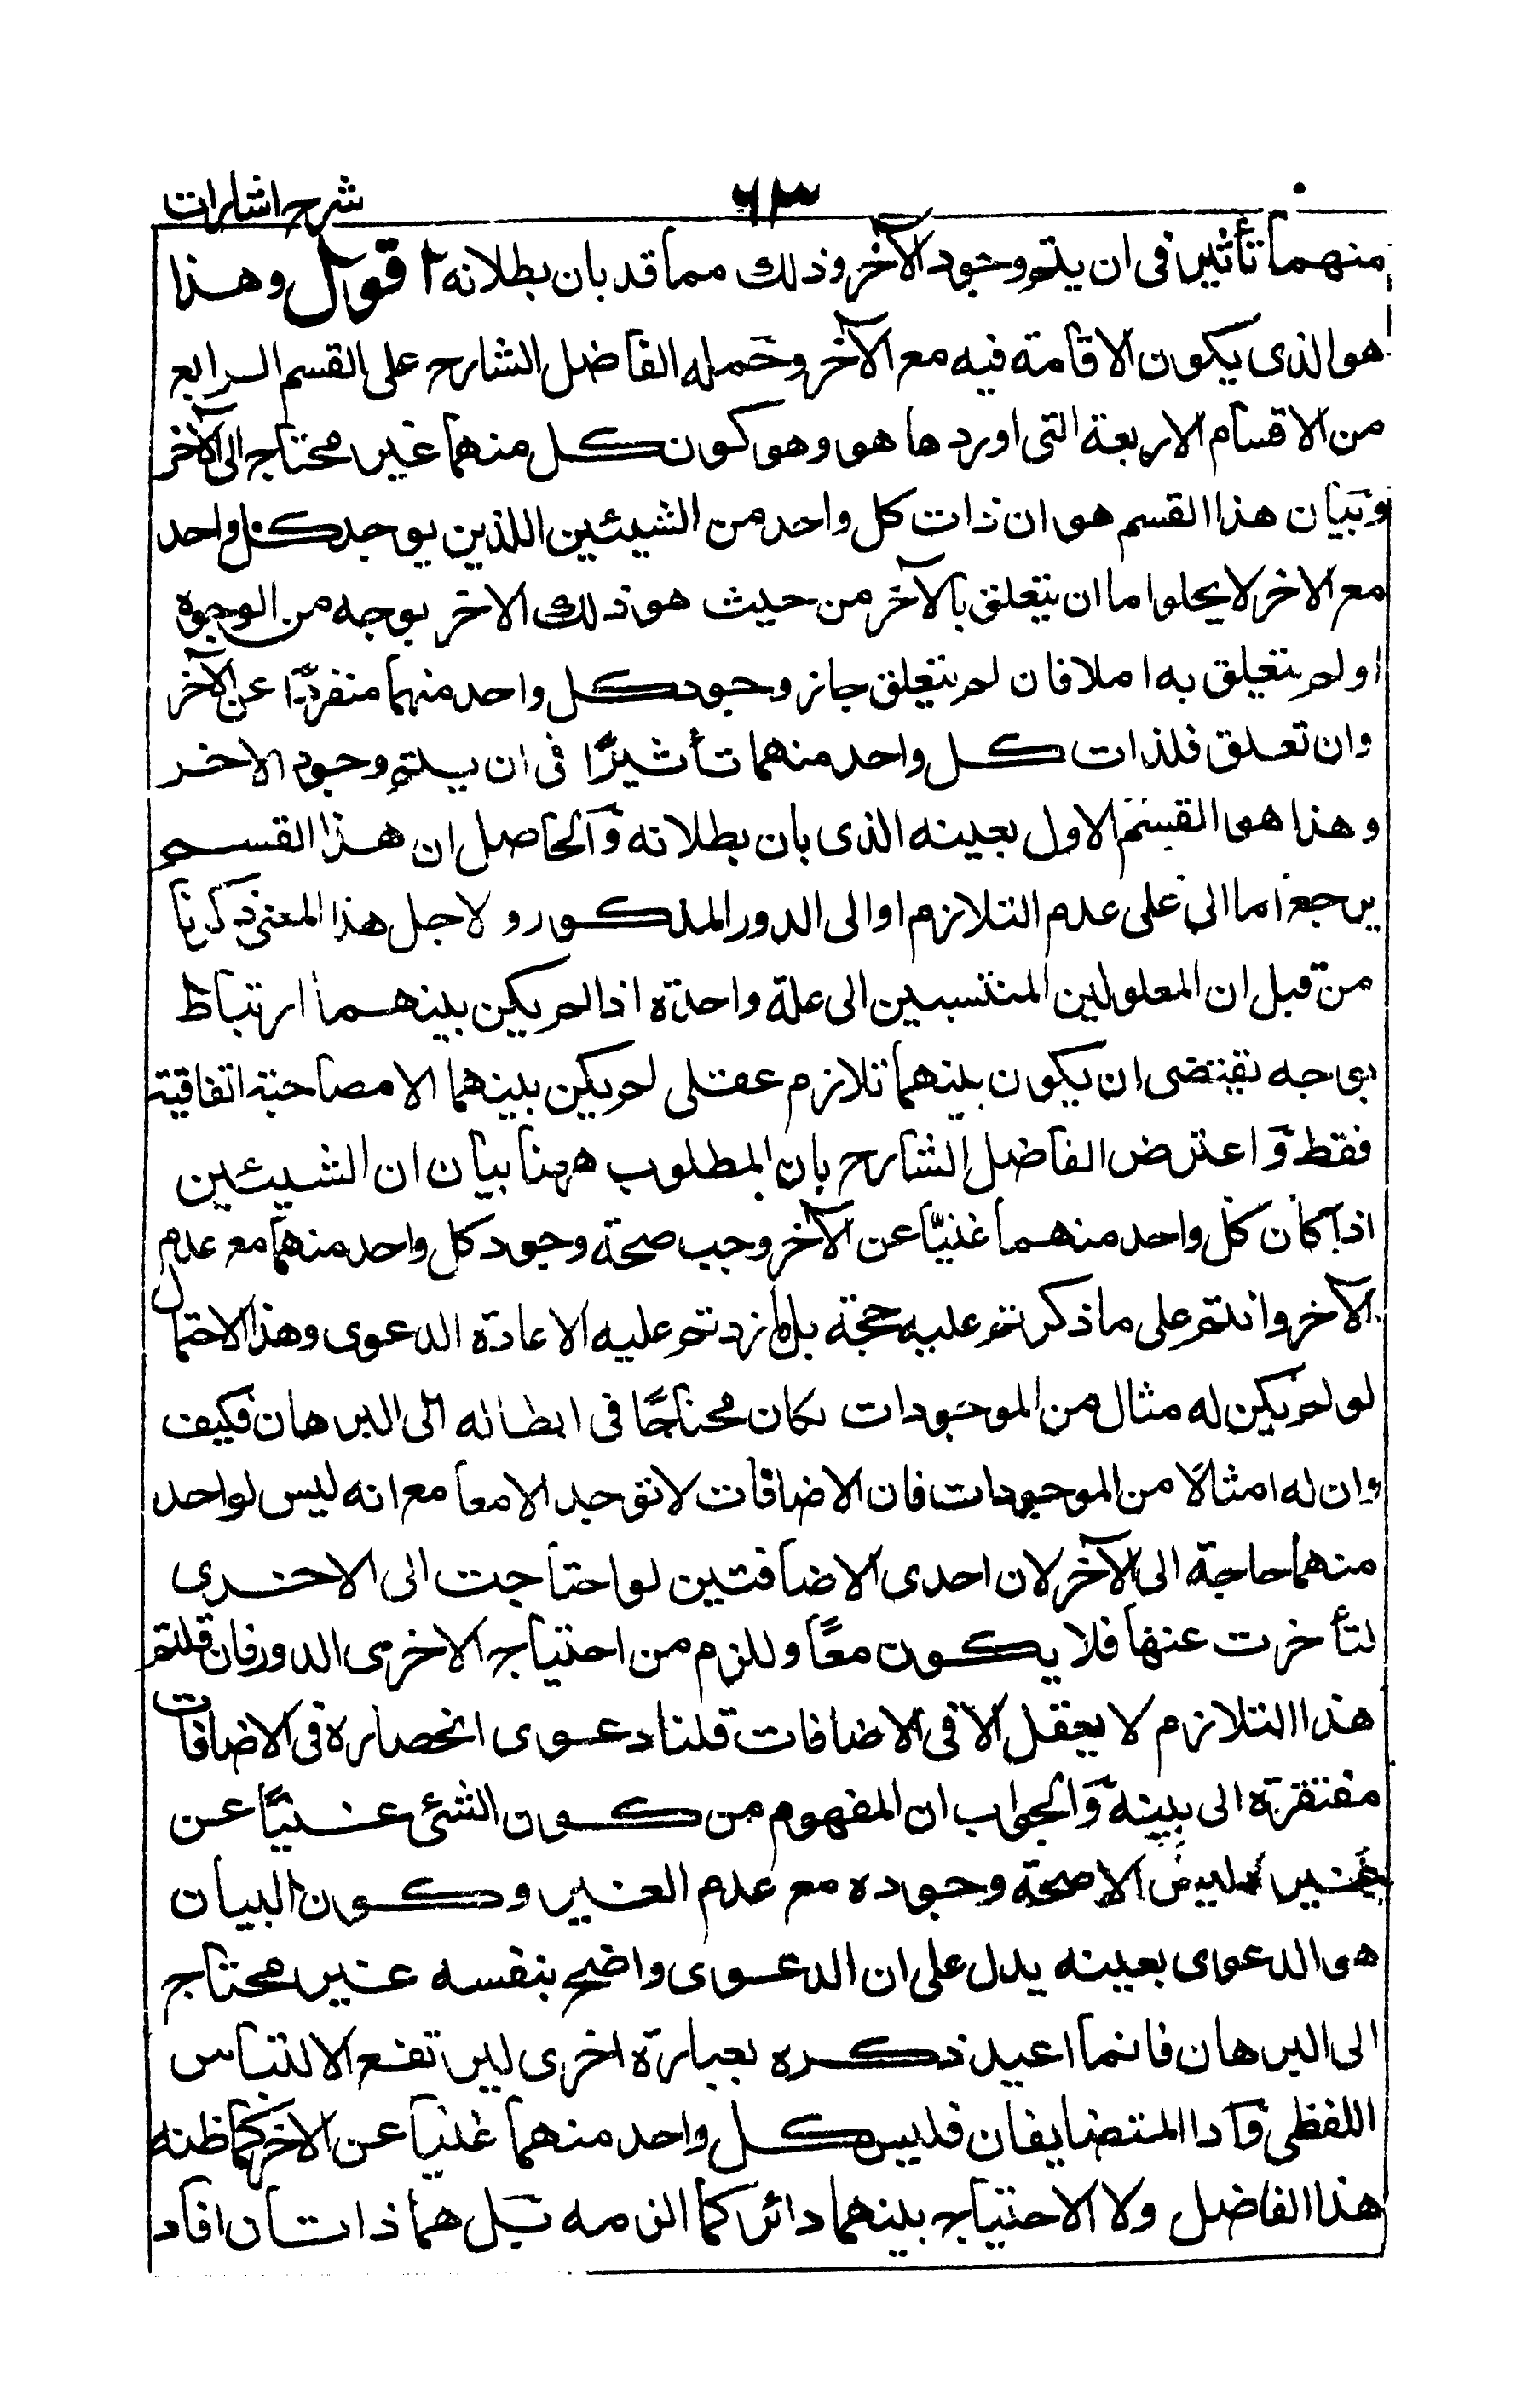 شرح اشارات
٦٣
منهما تأثير في ان يتم وجود الآخر وذلك مما قد بان بطلانه اقول وهذا
هو الذي يكون الاقامة فيه مع الآخر وحمله الفاضل الشارح على القسم الرابع
من الاقسام الاربعة التي اوردها هو وهو كون كل منهما غير محتاج الى الآخر
وبيان هذا القسم هو ان ذات كل واحد من الشيئين اللذين يوجد كل واحد
مع الاخر لا يخلوا ما ان يتعلق بالآخر من حيث هو ذلك الاخر بوجه من الوجوه
او لم يتعلق به املا فان لم يتعلق جاز وجود كل واحد منهما منفردا عن الآخر
وان تعلق فلذات كل واحد منهما تأثيرًا في ان يتم وجود الاخر
وهذا هو القسم الاول بعينه الذي بان بطلانه والحاصل ان هذا القسم
يرجع اما الى على عدم التلازم او الى الدور المذكور ولاجل هذا المعنى ذكرنا
من قبل ان المعلولين المنتسبين الى علة واحدة اذا لم يكن بينهما ارتباط
بوجه يقتضى ان يكون بينهما تلازم عقلى لم يكن بينهما الا مصاحبة اتفاقية
فقط واعترض الفاضل الشارح بان المطلوب ههنا بيان ان الشيئين
اذا كان كل واحد منهما غنيًا عن الآخر وجب صحة وجود كل واحد منهما مع عدم
الآخر وانتم على ما ذكرتم عليه حجة بل ما زدتم عليه الا عادة الدعوى وهذا الاحتمال
لو لم يكن له مثال من الموجودات لكان محتاجًا في ابطاله الى البرهان فكيف
وان له امثالا من الموجودات فان الاضافات لا توجد الا معا مع انه ليس لواحد
منهما حاجة الى الآخر لان احدى الاضافتين لو احتاجت الى الاخرى
لتأخرت عنها فلا يكون معًا وللزم من احتياج الاخرى الدور فان قلتم
هذا التلازم لا يعقل الا في الاضافات قلنا دعوى انحصاره في الاضافات
مفتقرة الى بينة والجواب ان المفهوم من كون الشئ غنيًا عن
غيره ليس الا صحة وجوده مع عدم الغير وكون البيان
هو الدعوى بعينه يدل على ان الدعوى واضح بنفسه غير محتاج
الى البرهان فانما اعيد ذكره بعبارة اخرى ليرتفع الالتباس
اللفظى واما المتضايفان فليس كل واحد منهما غنيا عن الاخر كما ظنه
هذا الفاضل ولا الاحتياج بينهما دائر كما الزمه بل هما ذاتان افاد